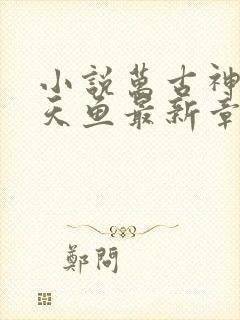 小說萬古神
天魚最新章
鄭問